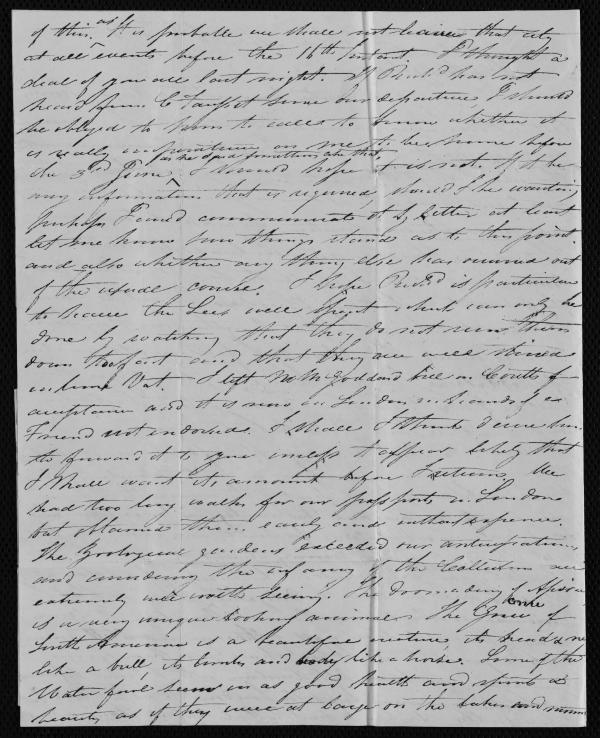 of this. as It is probable we shall not leave that city
at all events before the 16th Instant I thought a
deal of you all last night. If Rich'd has not
heard from C Taufst since our departure I should
be obliged to him to call to know whether it
is really imperative on me to be home before
the 3rd June. I should hope it is not. If it be
any information that is required, should I be wanting,
perhaps I could communicate it by letter at least
let me know how things stand as to this point.
and also whether any thing else has occurred out
of the usual course. I hope Rich'd is particular
to have the Lees well spent which can only be
done by watching that they do not run them
down too fast and that they are well stirred
in lime Vat. I left Mr McGoddard bill on Coutts for
acceptance and it is now in London in hands of a
Friend not endorsed. I shall I think desire him
to forward it to you unless it appear likely that
I shall want its amount before I return. We
had two long walks for our passports in London
but obtained them easily and without expence.
The Zoological gardens exceeded our anticipations
and considering the infancy of the Collection are
extremely well worth seeing. The Dromedary of Africa
is a very unique looking animal. The Gnu of
South America is a beautiful creature its head &
like a bull, its limbs and body like a horse. Some of the
Water fowl seem in as good health and spirits &
beauty as if they were at large on the lakes and